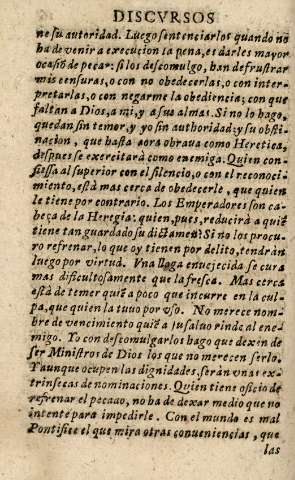 DISCVRSOS
ne su autoridad. Luego sentenciarlos quando no
ha de venir a execucion la pena, es darles mayor
ocasiõ de pecar: si los descomulgo, han de frustrar
mis censuras, o con no obedecerlas, o con inter-
pretarlas, o con negarme la obediencia; con que
faltan a Dios, a mi, y a sus almas. Si no lo hago,
quedan sin temor, y yo sin authoridad: y su obsti-
nacion, que hasta aora obraua como Heretica,
despues se exercitarà como enemiga. Quien con-
fiessa al superior con el silencio, o con el reconoci-
miento, està mas cerca de obedecerle, que quien
le tiene por contrario. Los Emperadores son ca-
beça de la Heregia: quien, pues, reducirà a quiẽ
tiene tan guardado su dictamen? Si no los procu-
ro refrenar, lo que oy tienen por delito, tendràn
luego por virtud. Vna llaga enuejecida se cura
mas dificultosamente que la fresca. Mas cerca
està de temer quiẽ a poco que incurre en la cul-
pa, que quien la tuuo por vso. No merece nom-
bre de vencimiento quiẽ a su saluo rinde al ene-
migo. Yo con descomulgarlos hago que dexen de
ser Ministros de Dios los que no merecen serlo.
Y aunque ocupen las dignidades, seràn vnas ex-
trinsecas denominaciones. Quien tiene oficio de
refrenar el pecado, no ha de dexar medio que no
intente para impedirle. Con el mundo es mal
Pontifice el que mira otras conueniencias, que
las